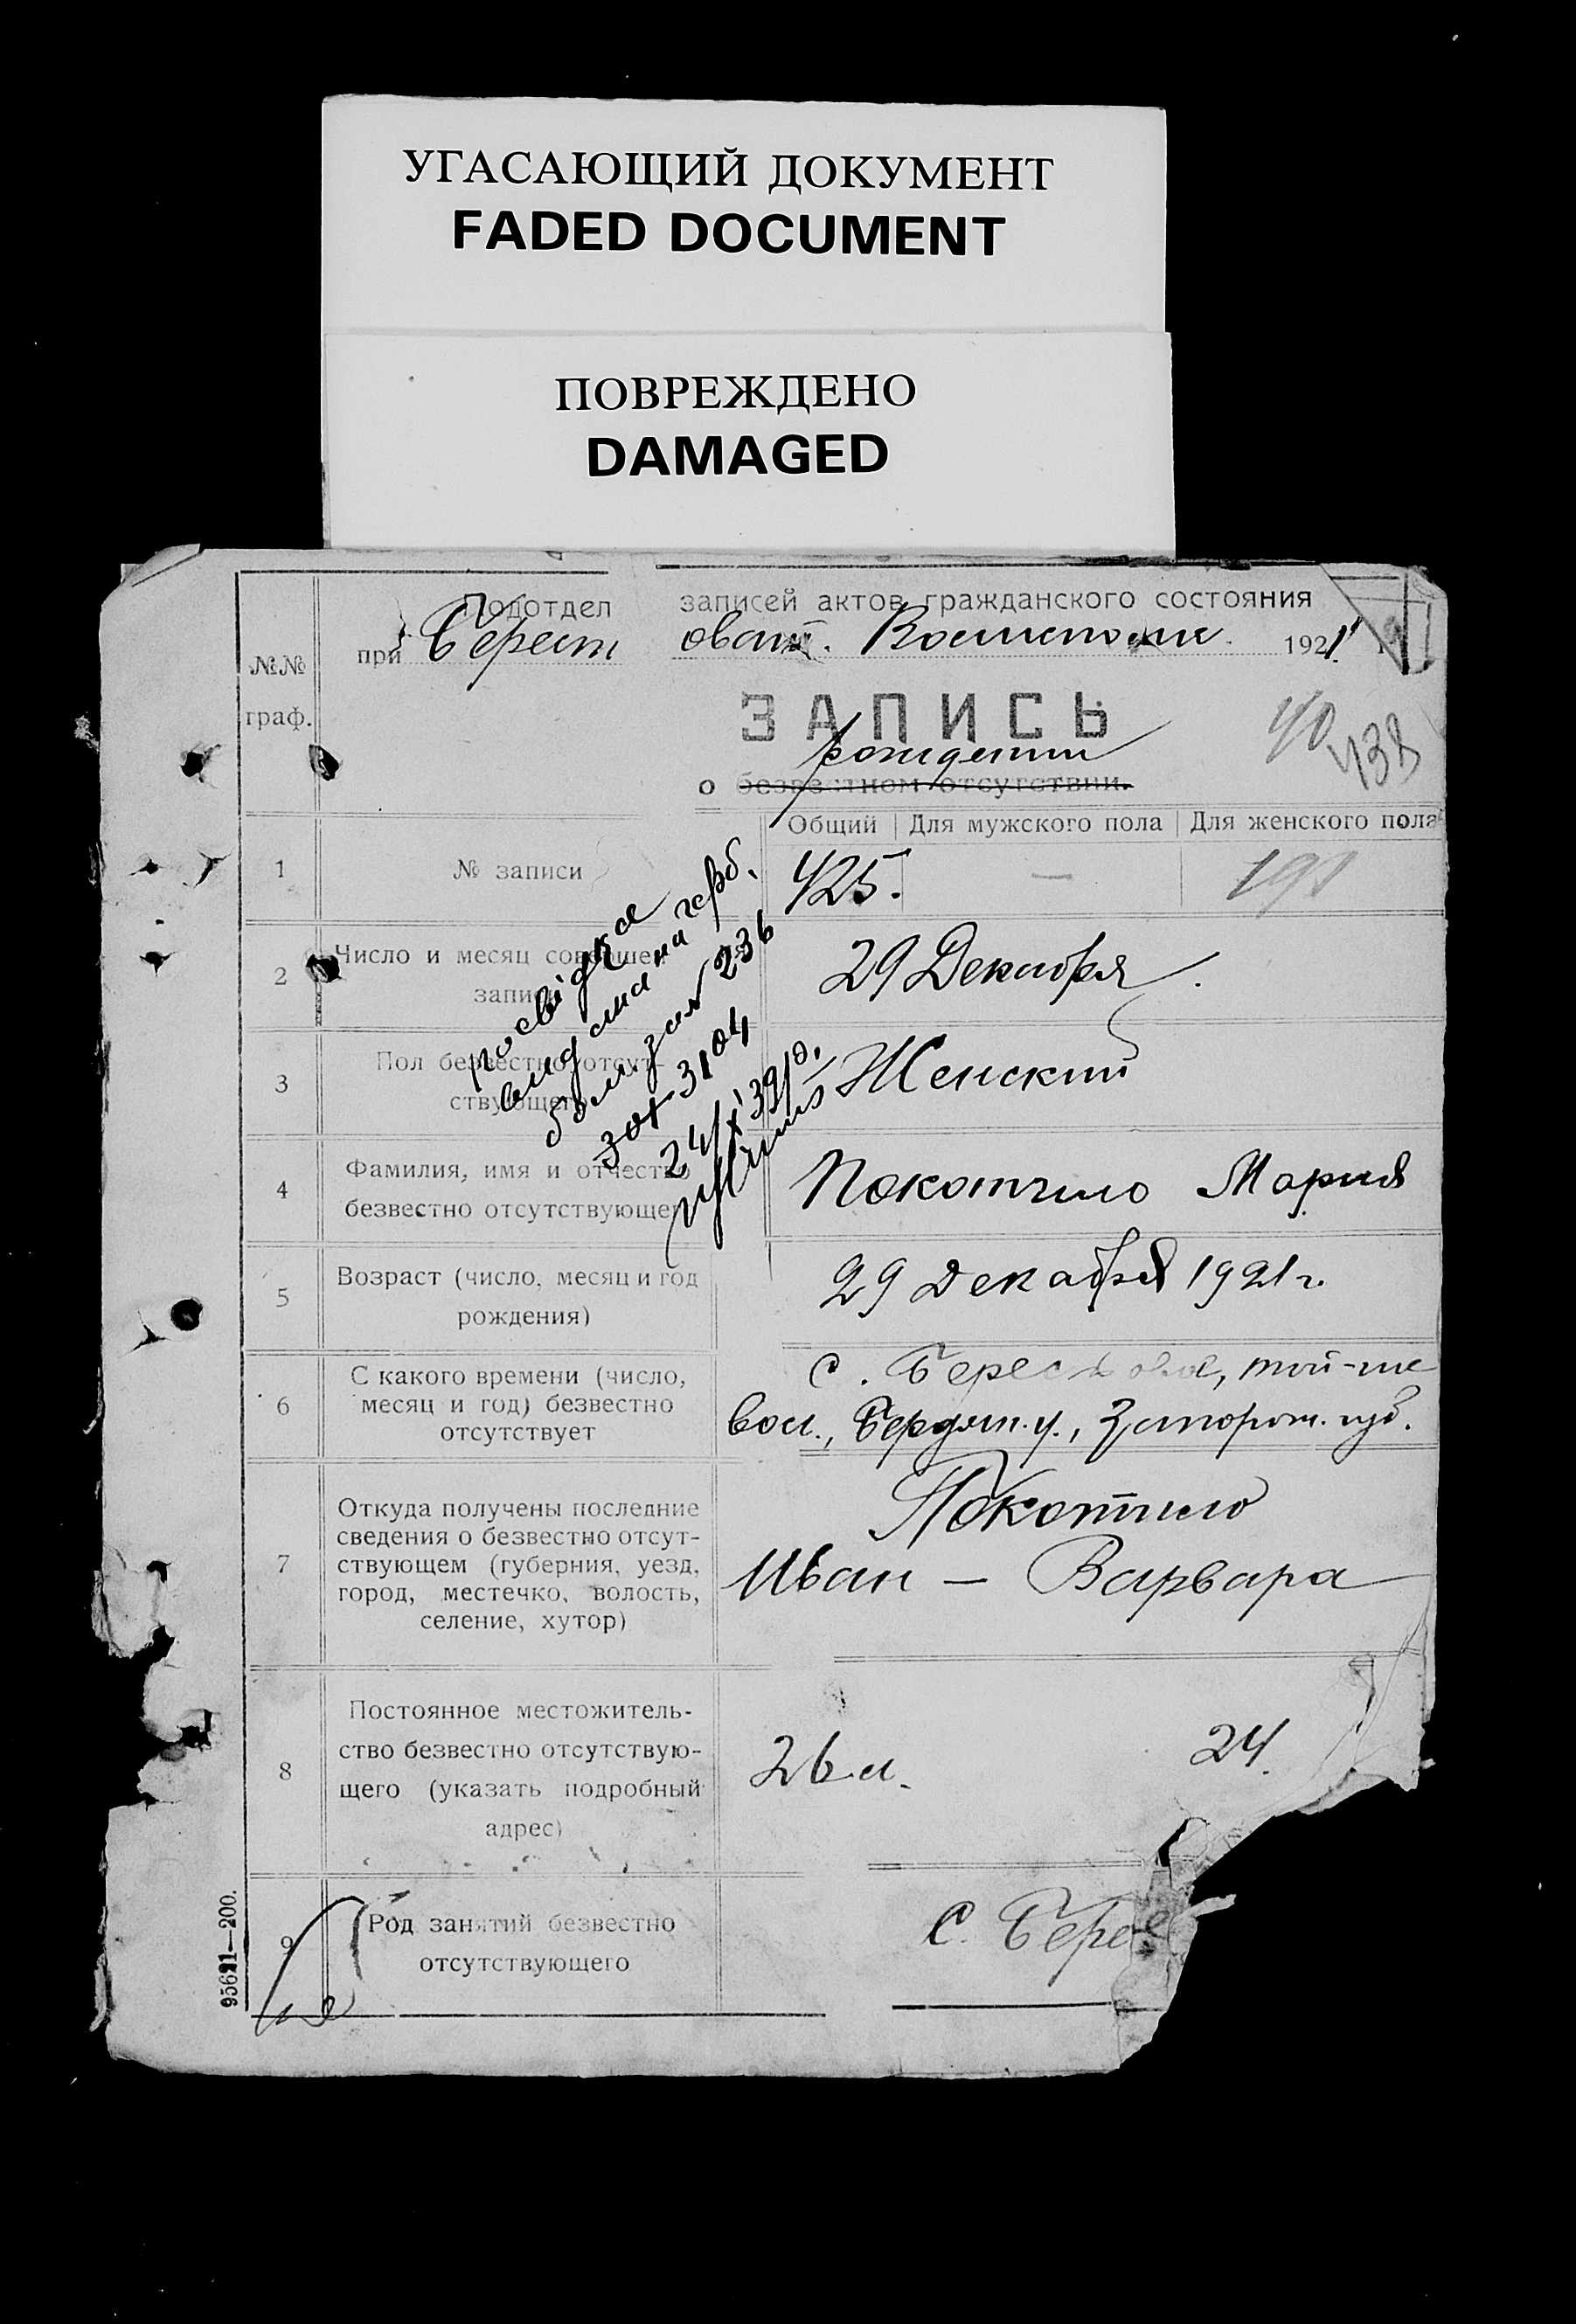 УГАСАЮЩИЙ ДОКУМЕНТ
FADED DOCUMENT
ПОВРЕЖДЕНО
DAMAGED
Подотдел записей актов гражданского состояния
при Берест оват. 1921
№№
граф.
ЗАПИСЬ
рождении
о безвестном отсутствии.
40
438
Общий Для мужского пола Для женского пола
1 № записи 425. —
2 Число и месяц совершен
запис 29 Декабря.
3 Пол безвестно отсут-
ствующего Женский
4 Фамилия, имя и отчество
безвестно отсутствующего Покотило Мария
5 Возраст (число, месяц и год
рождения) 29 Декабря 1921 г.
6 С какого времени (число,
месяц и год) безвестно
отсутствует
с. Берестовое, той-же
вол., Бердян. у., Запорож. губ.
7 Откуда получены последние
сведения о безвестно отсут-
ствующем (губерния, уезд,
город, местечко, волость,
селение, хутор)
Покотило
Иван — Варвара
8 Постоянное местожитель-
ство безвестно отсутствую-
щего (указать подробный
адрес)
26 л. 24.
9 Род занятий безвестно
отсутствующего
с. Бере
95621—200.
посвідка
видана на герб.
236
3104
24/X 39 р.